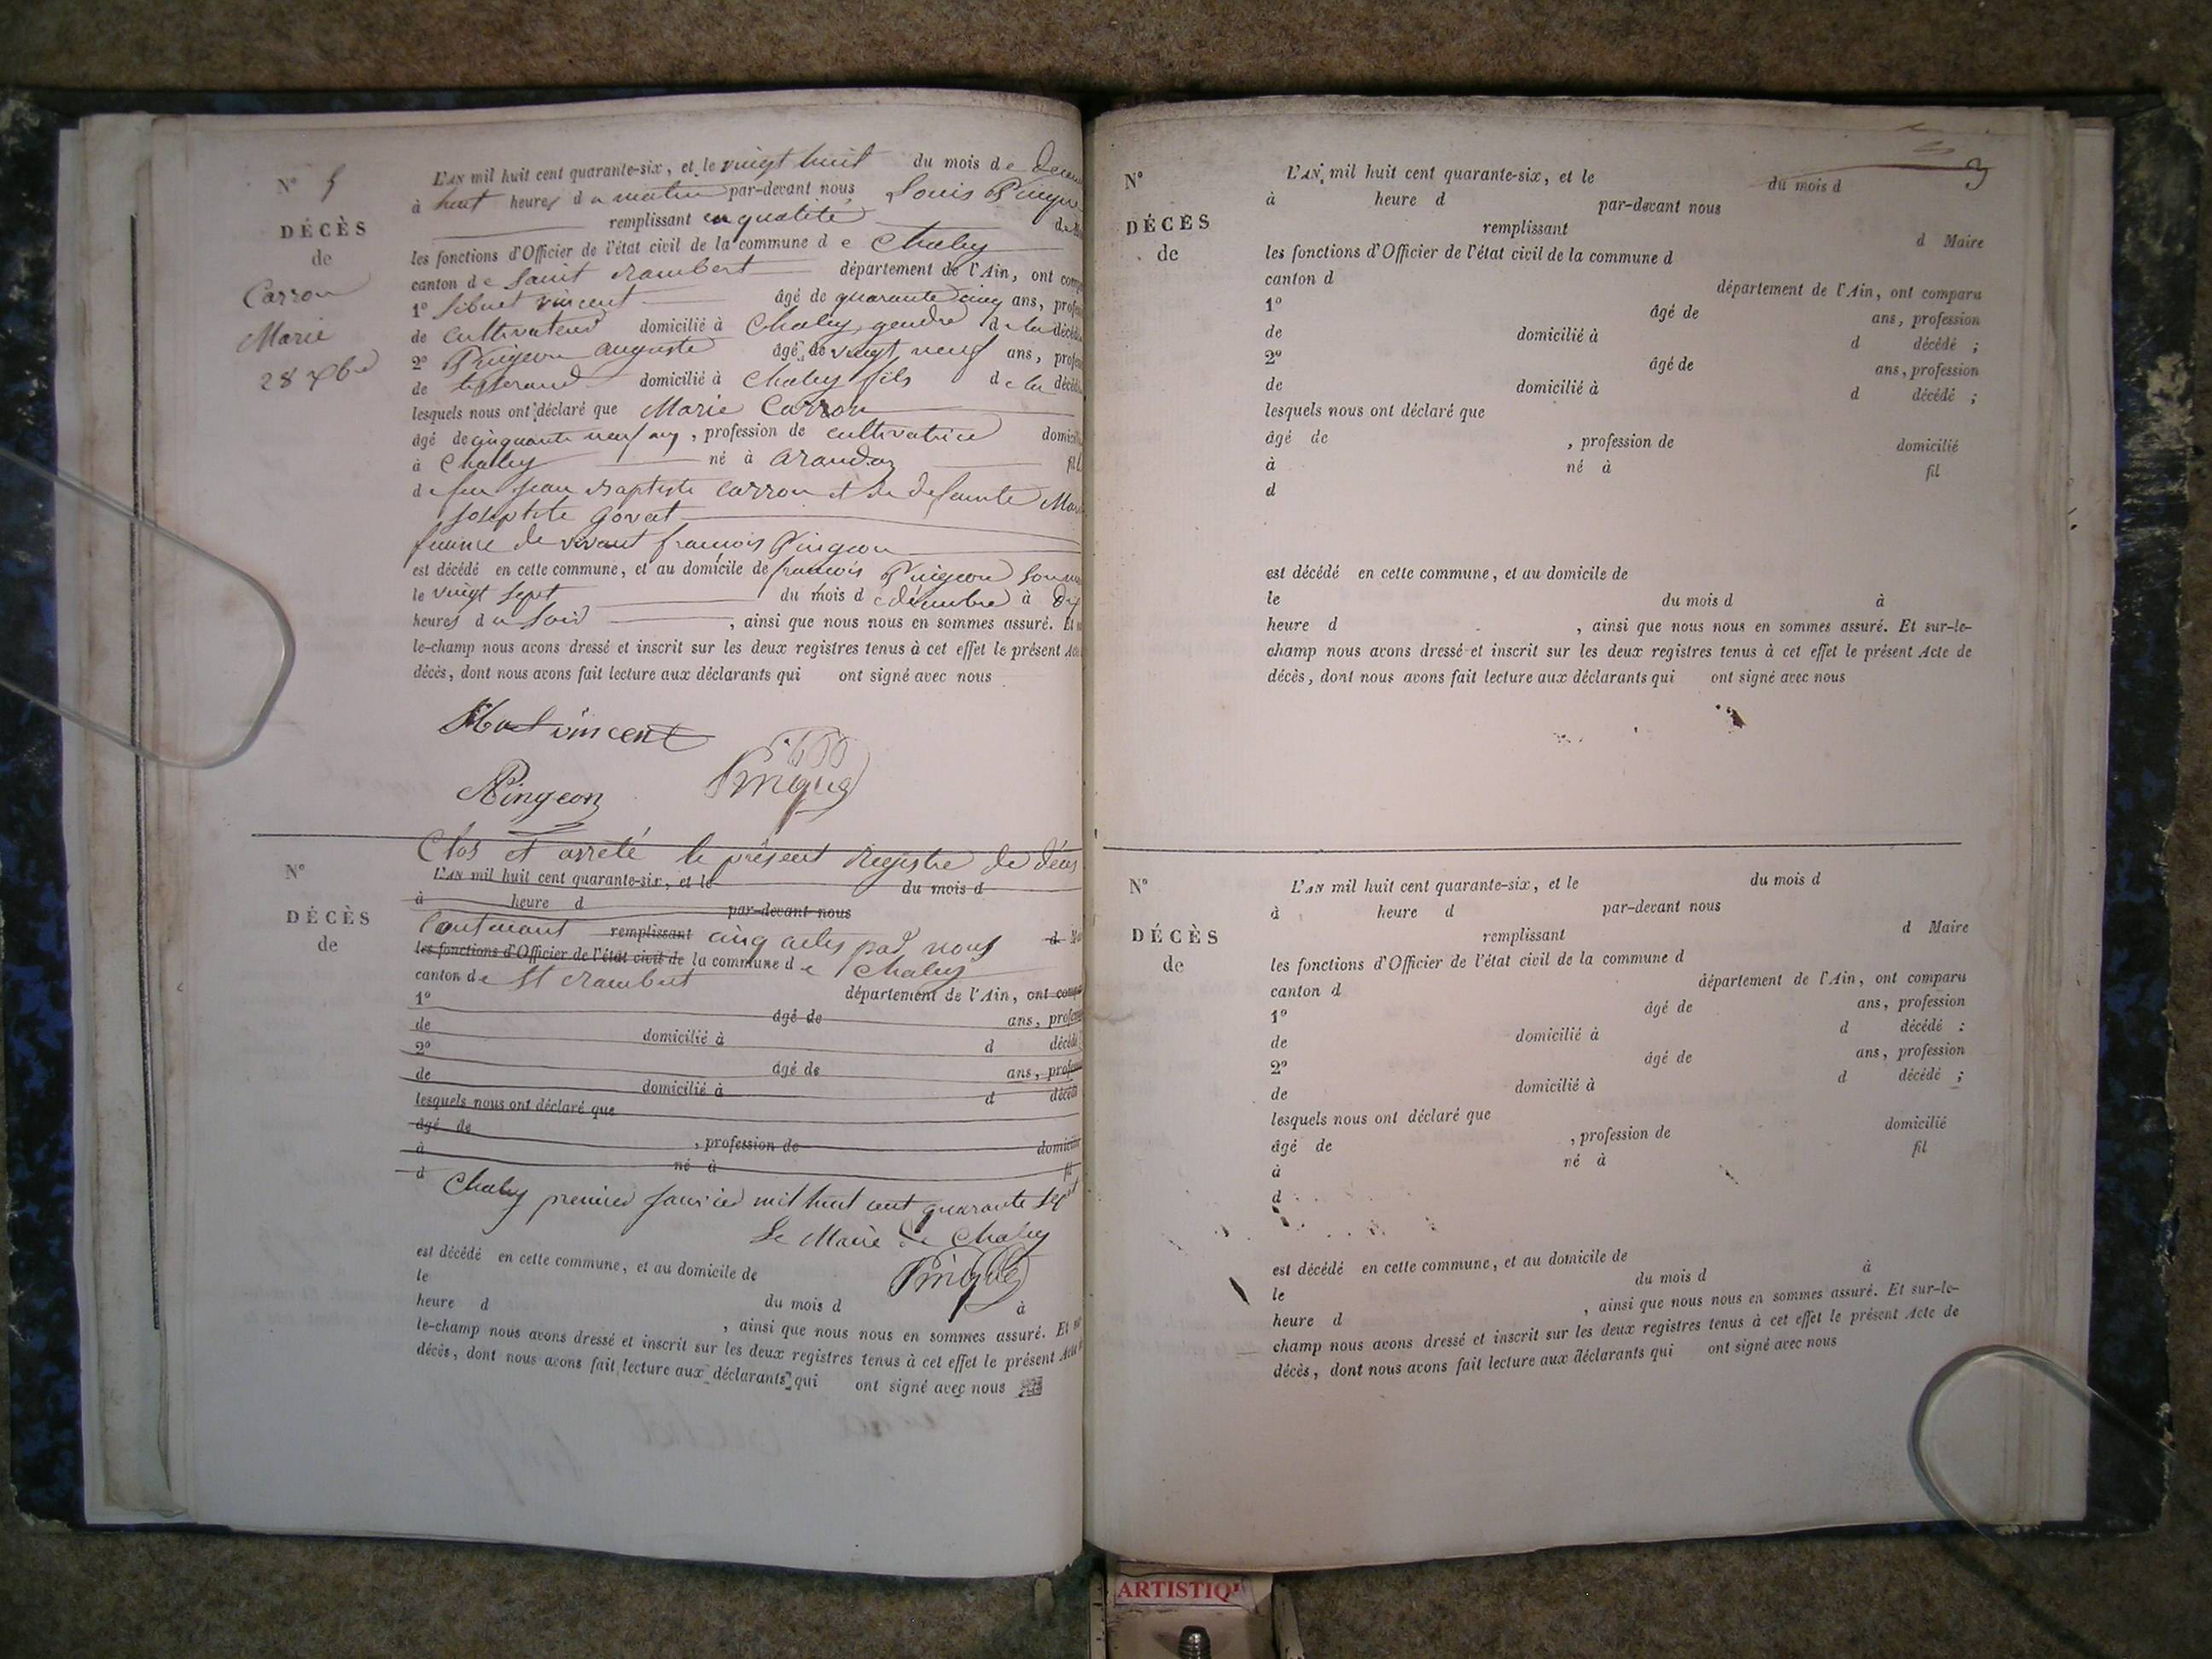 N° 5
DÉCÈS
de
Carron
Marie
28 Xbre
L'AN mil huit cent quarante-six, et le vingt huit du mois de
à huit heures du matin par-devant nous Louis
remplissant en qualité de
les fonctions d'Officier de l'état civil de la commune de Chaley
canton de Saint Rambert département de l'Ain, ont
1° Sibuet vincent âgé de quarante cinq ans,
de cultivateur domicilié à Chaley gendre de la
2° Pingeon auguste âgé de vingt neuf ans,
de tisserand domicilié à Chaley fils de la
lesquels nous ont déclaré que Marie Carron
âgé de cinquante neuf ans, profession de cultivatrice
à Chaley né à arandaz
de feu Jean Baptiste Carron et de defunte
Josephte Govet
femme de vivant francois Pingeon
est décédé en cette commune, et au domicile de francois Pingeon
le vingt sept du mois de décembre à Dix
heures du soir, ainsi que nous nous en sommes assuré. Et
le-champ nous avons dressé et inscrit sur les deux registres tenus à cet effet le présent Acte
décès, dont nous avons fait lecture aux déclarants qui ont signé avec nous
vincent
Pingeon
N°
DÉCÈS
de
Clos et arreté le présent Registre de décès
L'AN mil huit cent quarante-six, et le du mois d
à heure d par-devant nous
Contenant remplissant cinq actes par nous d
les fonctions d'Officier de l'état civil de la commune de Chaley
canton de St Rambert département de l'Ain, ont
1° âgé de ans,
de domicilié à d
2° âgé de ans,
de domicilié à d
lesquels nous ont déclaré que
âgé de , profession de
à né à
d Chaley premier janvier mil huit cent quarante sept
Le Maire de Chaley
est décédé en cette commune, et au domicile de
le du mois d à
heure d , ainsi que nous nous en sommes assuré. Et
le-champ nous avons dressé et inscrit sur les deux registres tenus à cet effet le présent Acte
décès, dont nous avons fait lecture aux déclarants qui ont signé avec nous
N°
DÉCÈS
de
L'AN mil huit cent quarante-six, et le du mois d
à heure d par-devant nous
remplissant d Maire
les fonctions d'Officier de l'état civil de la commune d
canton d département de l'Ain, ont comparu
1° âgé de ans, profession
de domicilié à d décédé ;
2° âgé de ans, profession
de domicilié à d décédé ;
lesquels nous ont déclaré que
âgé de , profession de domicilié
à né à fil
d
est décédé en cette commune, et au domicile de
le du mois d à
heure d , ainsi que nous nous en sommes assuré. Et sur-le-
champ nous avons dressé et inscrit sur les deux registres tenus à cet effet le présent Acte de
décès, dont nous avons fait lecture aux déclarants qui ont signé avec nous
N°
DÉCÈS
de
L'AN mil huit cent quarante-six, et le du mois d
à heure d par-devant nous
remplissant d Maire
les fonctions d'Officier de l'état civil de la commune d
canton d département de l'Ain, ont comparu
1° âgé de ans, profession
de domicilié à d décédé :
2° âgé de ans, profession
de domicilié à d décédé ;
lesquels nous ont déclaré que
âgé de , profession de domicilié
à né à fil
d
est décédé en cette commune, et au domicile de
le du mois d à
heure d , ainsi que nous nous en sommes assuré. Et sur-le-
champ nous avons dressé et inscrit sur les deux registres tenus à cet effet le présent Acte de
décès, dont nous avons fait lecture aux déclarants qui ont signé avec nous
ARTISTIQ